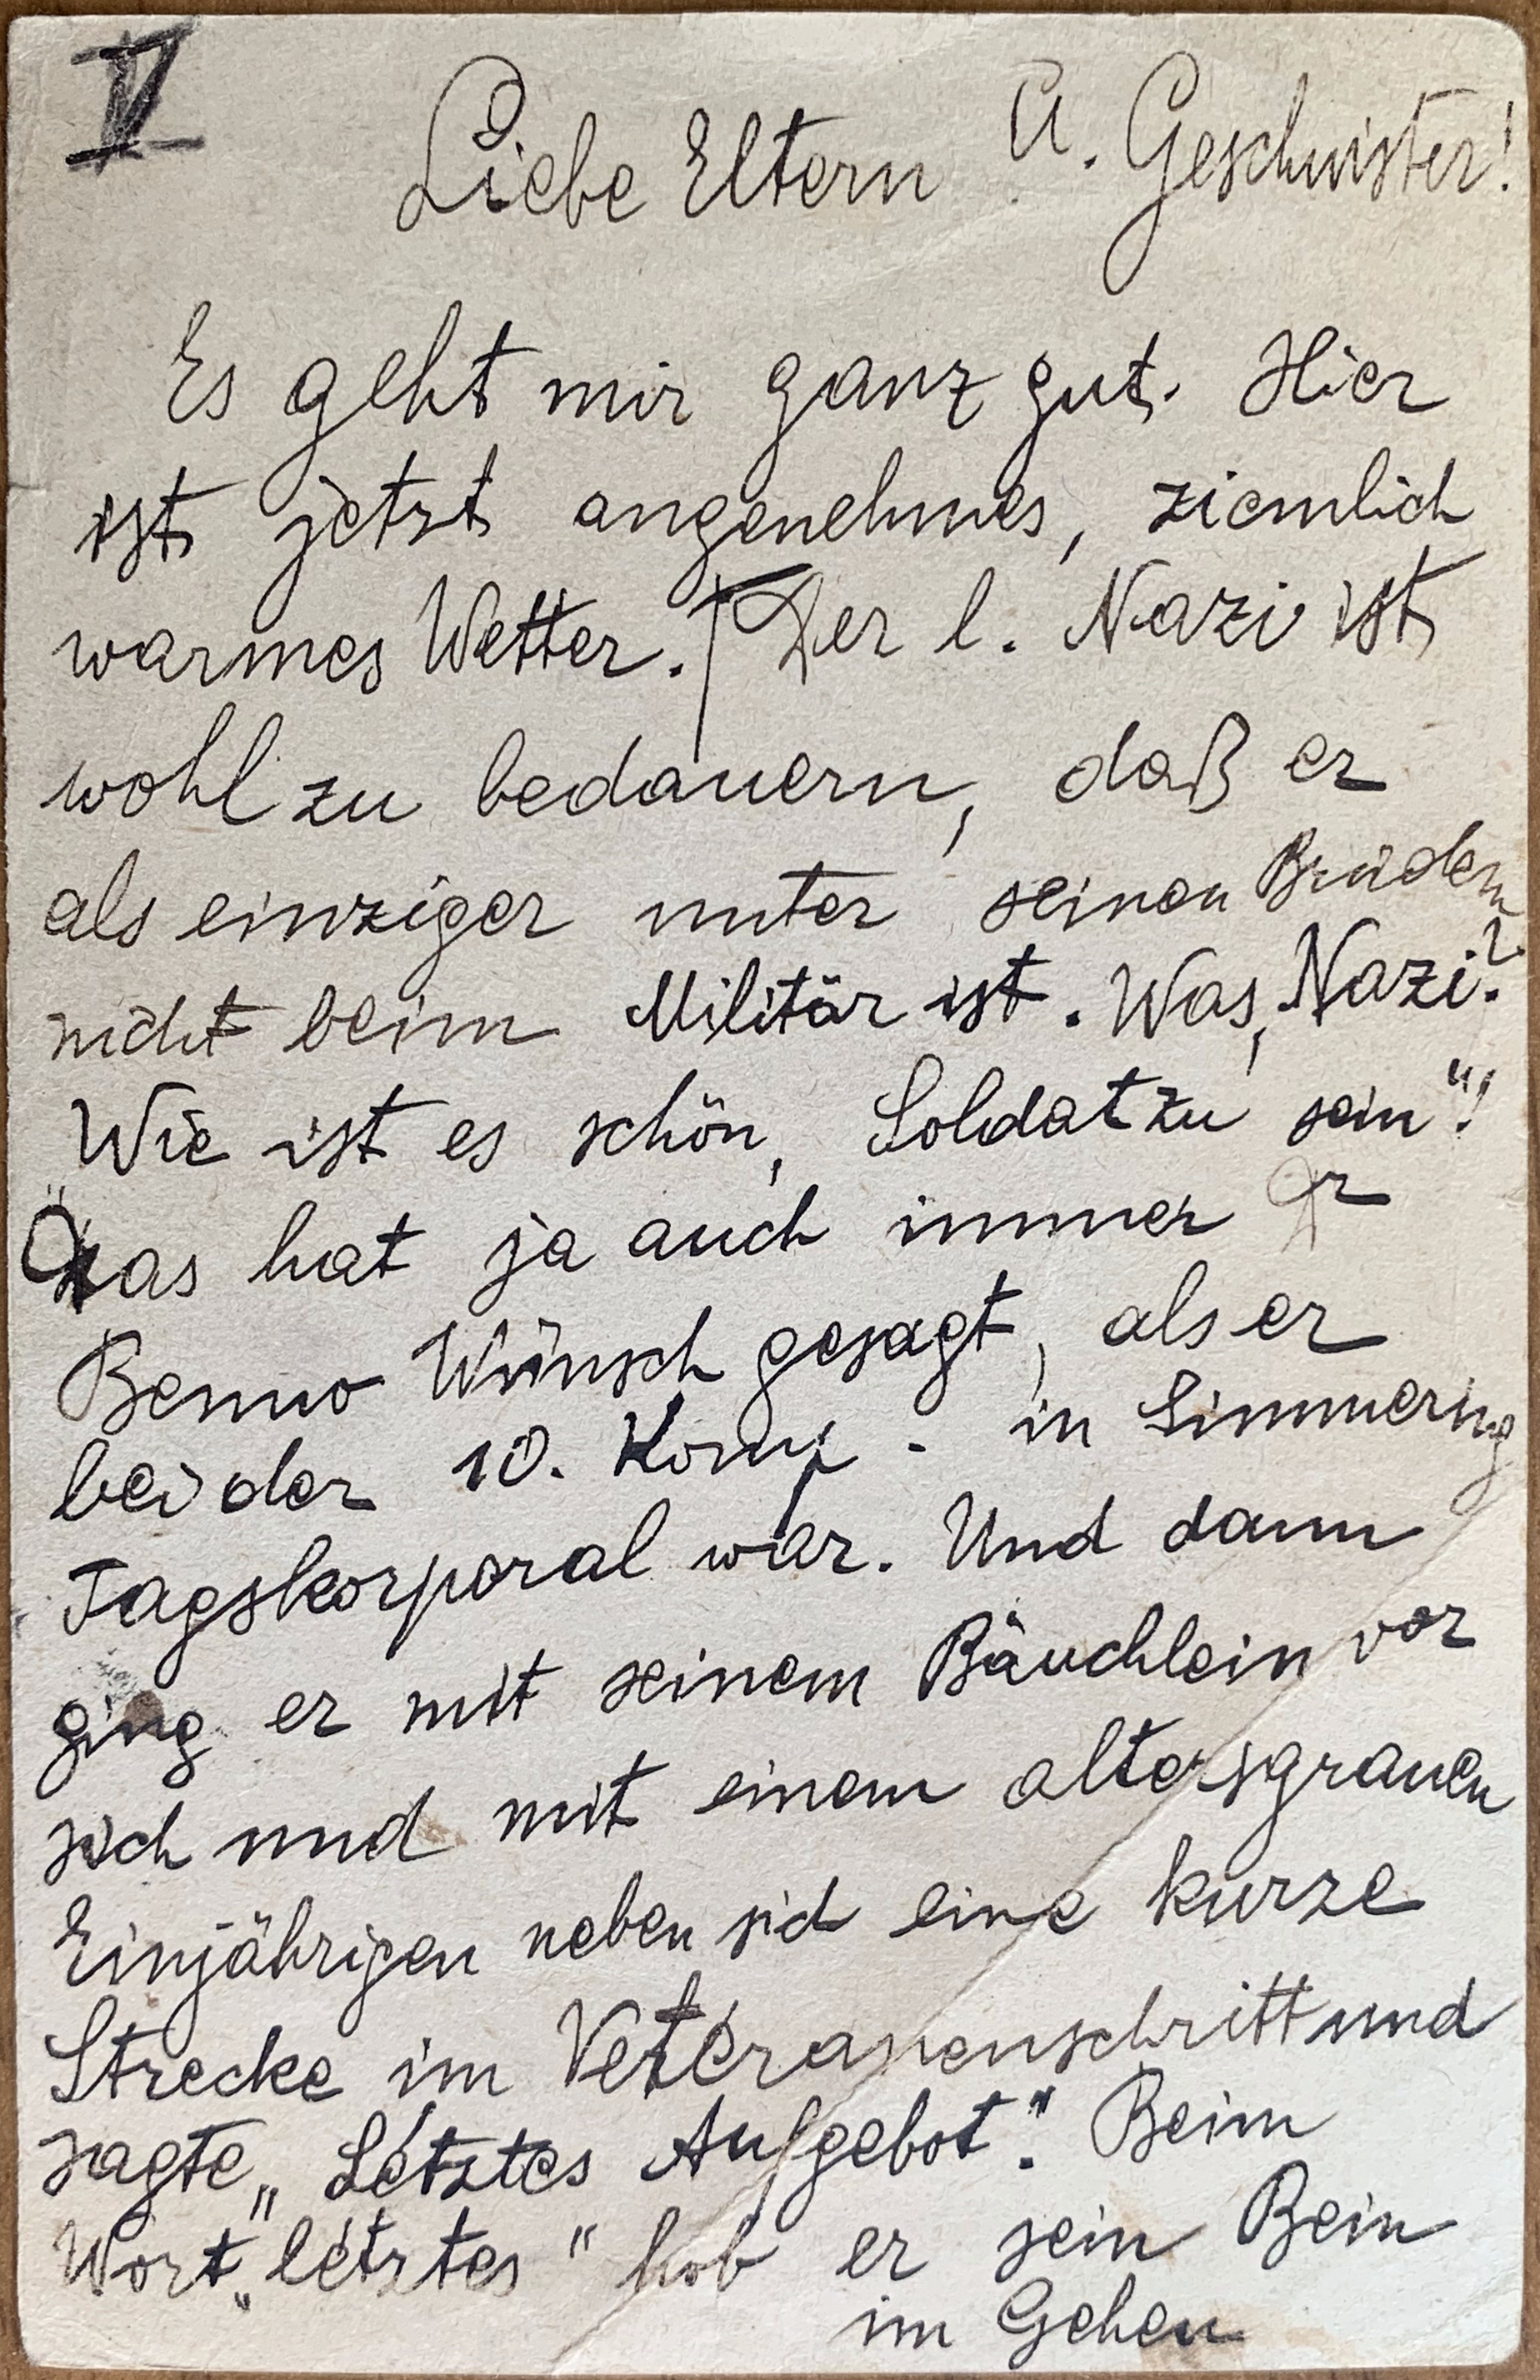 V
Liebe Eltern u. Geschwister!
Es geht mir ganz gut. Hier
ist jetzt angenehmes, ziemlich
warmes Wetter. Der l. Nazi ist
wohl zu bedauern, daß er
als einziger unter seinen Brüdern
nicht beim Militär ist. Was, Nazi?
Wie ist es schön, Soldat zu sein"!
Das hat ja auch immer Dr
Benno Wünsch gesagt, als er
bei der 10. Komp. in Simmering
Tagskorporal war. Und dann
ging er mit seinem Bäuchlein vor
sich und mit einem altersgrauen
Einjährigen neben sich eine kurze
Strecke im Veteranenschritt und
sagte „Létztes Aufgebot". Beim
Wort „létztes" hob er sein Bein
im Gehen